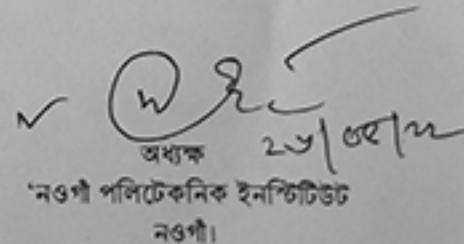 অধ্যক্ষ
২৬/০৫/২২
'নওগাঁ পলিটেকনিক ইনস্টিটিউট
নওগাঁ।